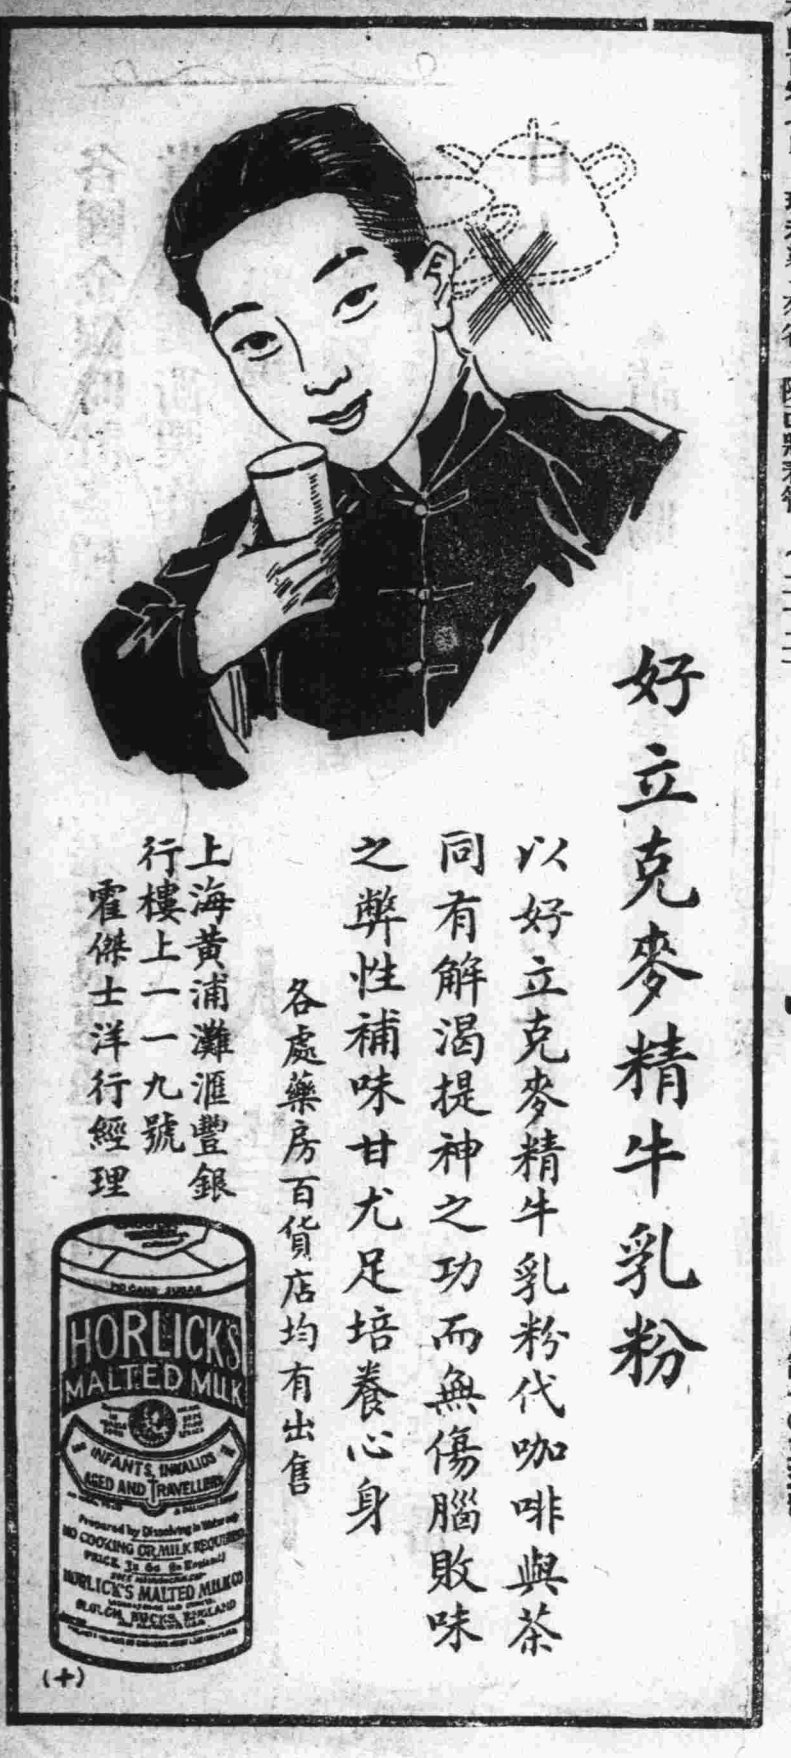 好立克麥精牛乳粉
以好立克麥精牛乳粉代咖啡與茶
同有解渴提神之功而無傷腦敗味
之弊性補味甘尤足培養心身
各處藥房百貨店均有出售
上海黃浦灘滙豐銀
行樓上一一九號
霍傑士洋行經理
NO CANE SUGAR
HORLICK'S
MALTED MILK
INFANTS, INVALIDS
AGED AND TRAVELLERS
Prepared by Dissolving in Water only
NO COOKING OR MILK REQUIRED
HORLICK'S MALTED MILK CO
SLOUGH, BUCKS, ENGLAND
(十)